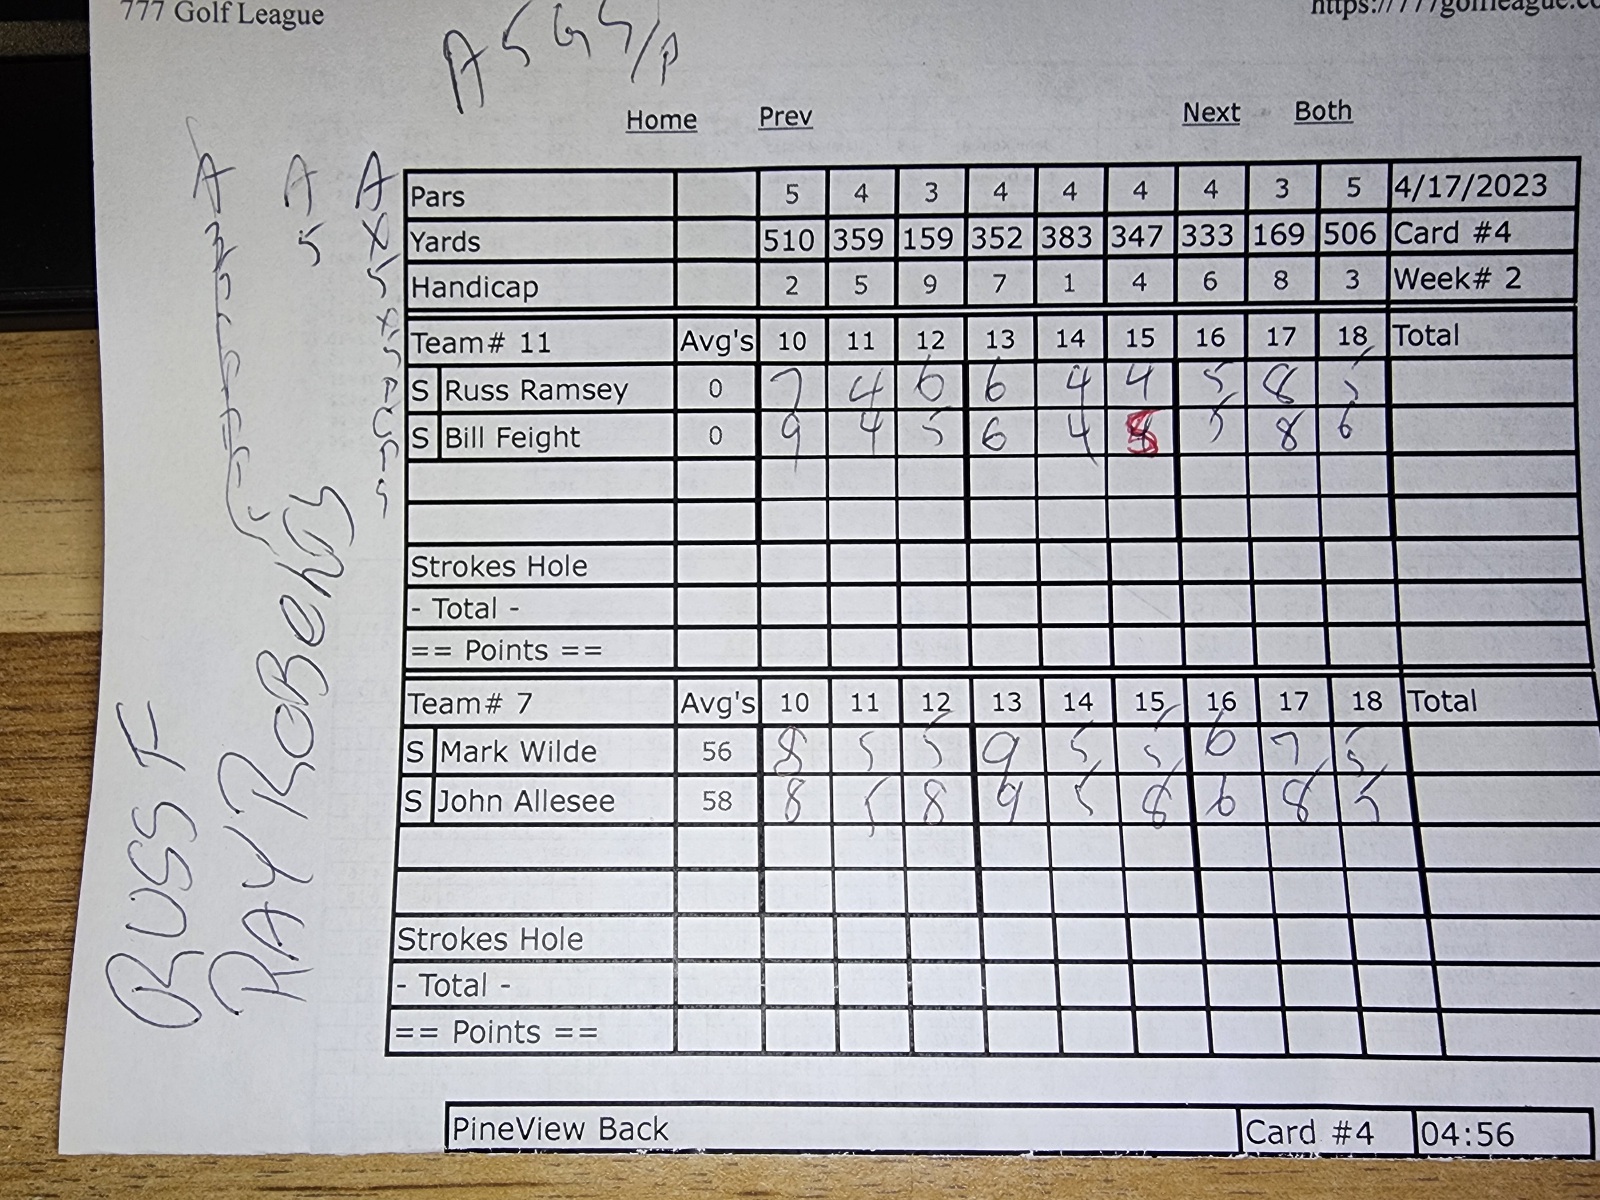 777 Golf League https://777golfleague.co
Home Prev Next Both
Pars 5 4 3 4 4 4 4 3 5 4/17/2023
Yards 510 359 159 352 383 347 333 169 506 Card #4
Handicap 2 5 9 7 1 4 6 8 3 Week# 2
Team# 11 Avg's 10 11 12 13 14 15 16 17 18 Total
S Russ Ramsey 0 7 4 6 6 4 4 5 8 5
S Bill Feight 0 9 4 5 6 4 5 8 6
Strokes Hole
- Total -
== Points ==
Team# 7 Avg's 10 11 12 13 14 15 16 17 18 Total
S Mark Wilde 56 8 5 5 9 5 5 6 7 5
S John Allesee 58 8 5 8 9 5 8 6 8 5
Strokes Hole
- Total -
== Points ==
PineView Back Card #4 04:56
RUSS F
RAY ROBERTS